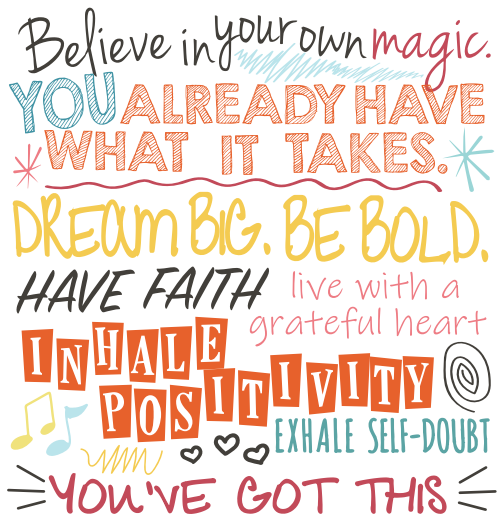 Believe in your own magic.
YOU ALREADY HAVE
WHAT IT TAKES.
DREAM BIG. BE BOLD.
HAVE FAITH
live with a
grateful heart
INHALE
POSITIVITY
EXHALE SELF-DOUBT
YOU'VE GOT THIS